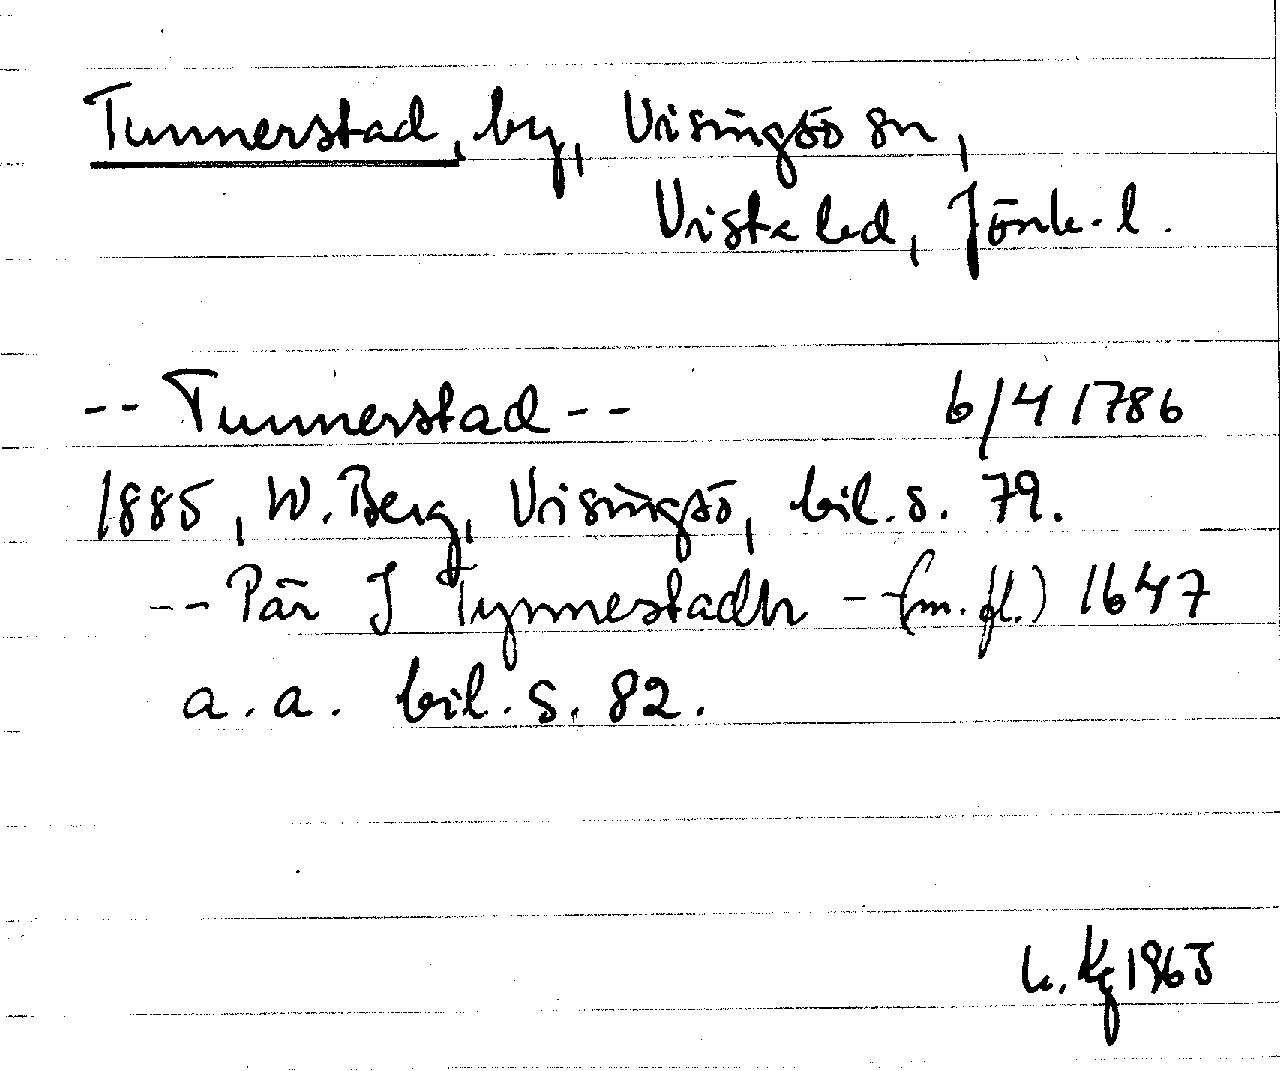 Tunnerstad, by, Visingsö sn,
Vista hd, Jönk. l.
-- Tunnerstad -- 6/4 1786
1885, W. Berg, Visingsö, bil. s. 79.
-- Pär J Tynnestadh -- (m. fl.) 1647
a. a. bil. s. 82.
1963